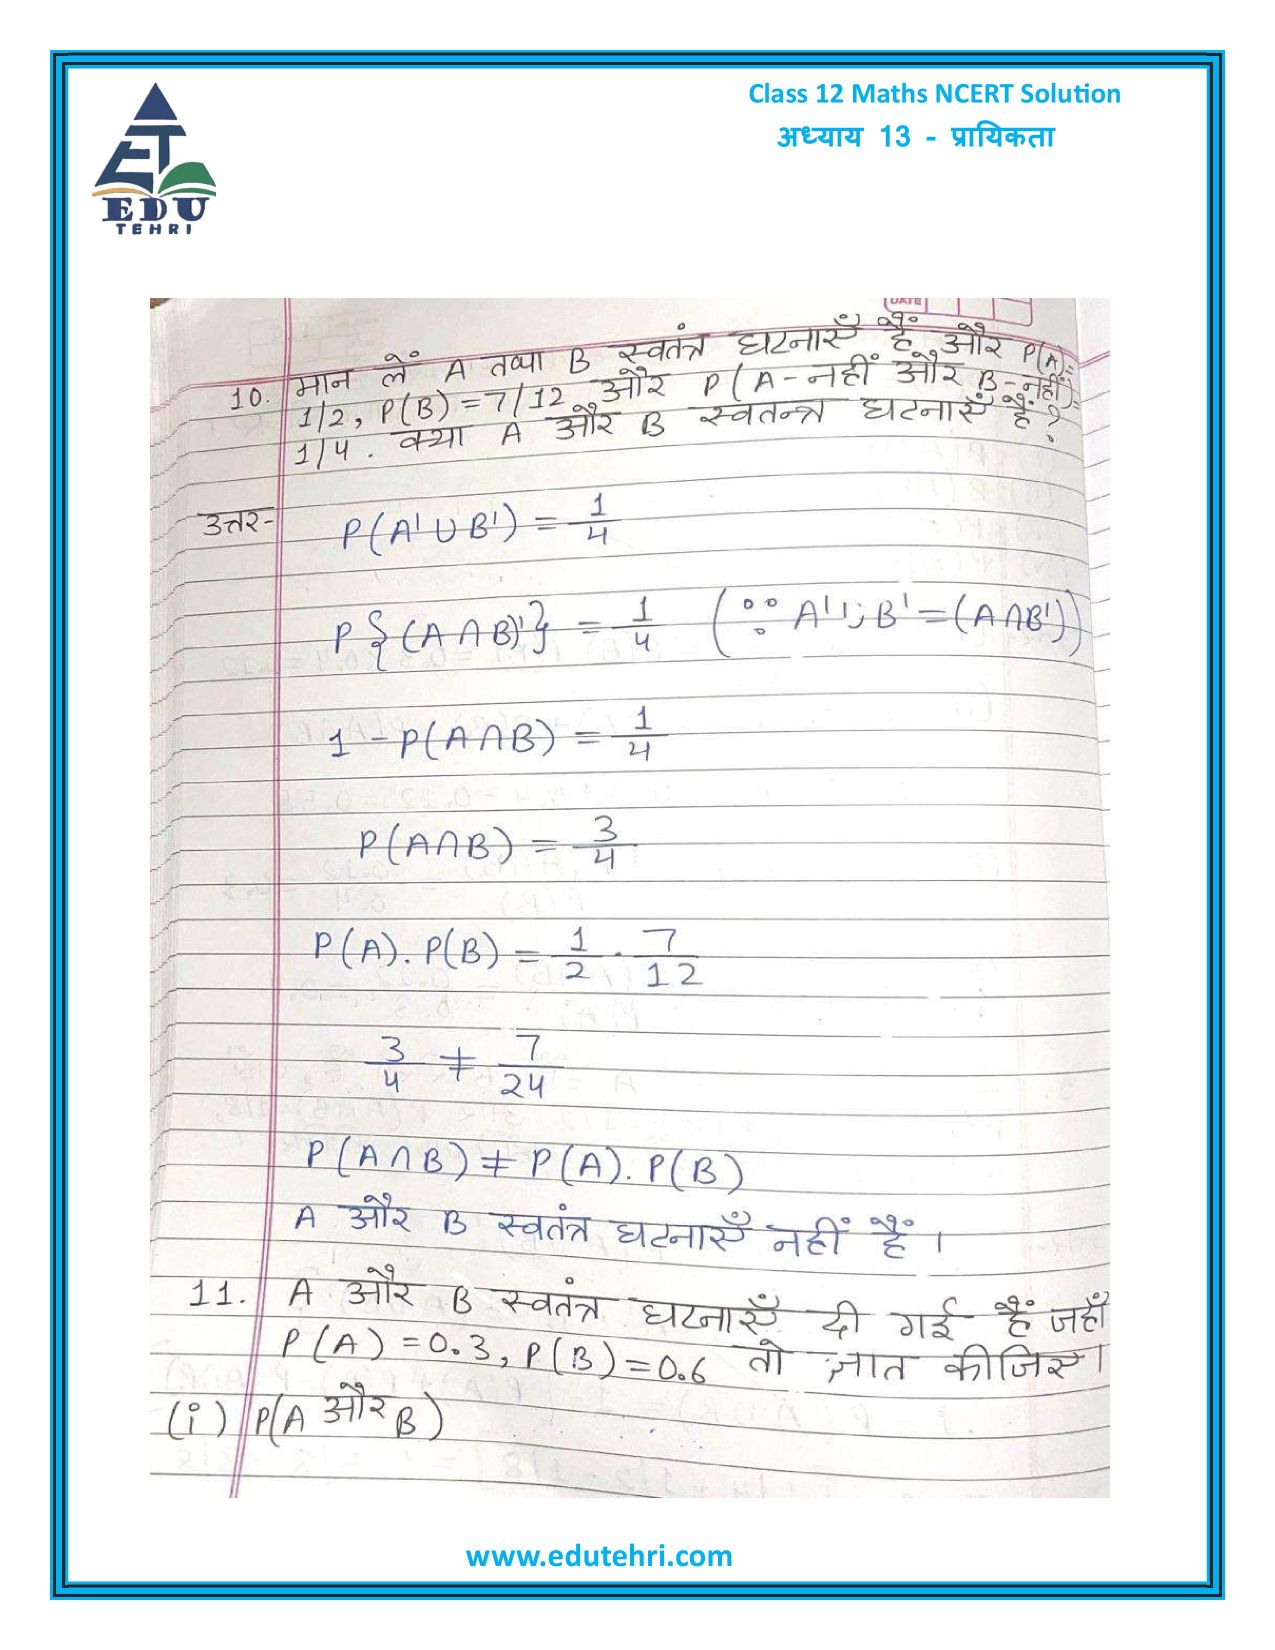 Class 12 Maths NCERT Solution
अध्याय 13 - प्रायिकता
EDU
TEHRI
DATE
10. मान लें A तथा B स्वतंत्र घटनाएँ हैं और P(A)=
1/2, P(B)=7/12 और P(A-नहीं और B-नहीं)=
1/4. क्या A और B स्वतन्त्र घटनाएँ हैं?
उत्तर- P(A'∪B') = 1/4
P{(A∩B)'} = 1/4 (∵ A'';B'=(A∩B'))
1 - P(A∩B) = 1/4
P(A∩B) = 3/4
P(A). P(B) = 1/2 · 7/12
3/4 ≠ 7/24
P(A∩B) ≠ P(A). P(B)
A और B स्वतंत्र घटनाएँ नहीं हैं।
11. A और B स्वतंत्र घटनाएँ दी गई हैं जहाँ
P(A)=0.3, P(B)=0.6 तो ज्ञात कीजिए।
(i) P(A और B)
www.edutehri.com